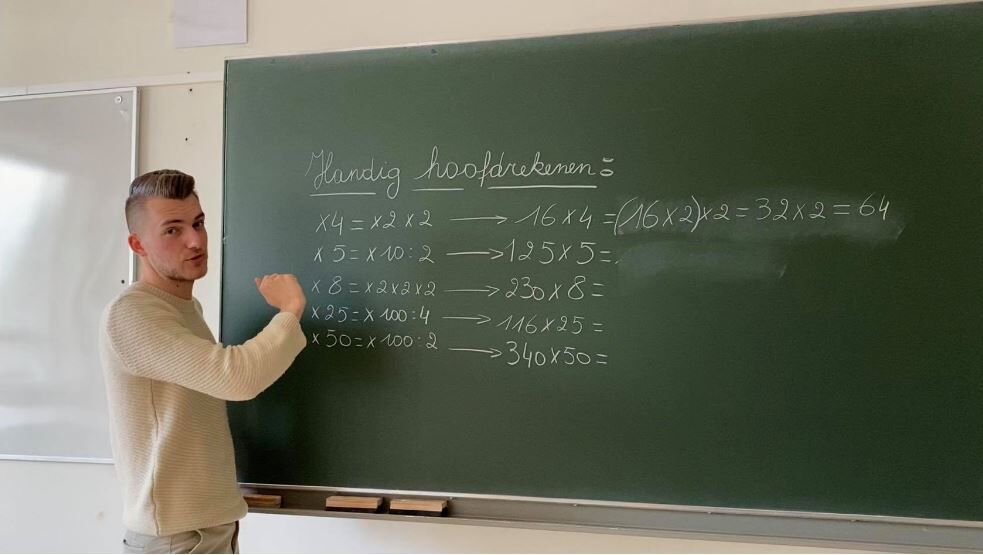 Handig hoofdrekenen:
x4 = x2 x2 → 16x4 = (16x2)x2 = 32x2 = 64
x 5 = x10:2 → 125x5 =
x 8 = x2x2x2 → 230x8 =
x25 = x100:4 → 116x25 =
x50 = x100:2 → 340x50 =